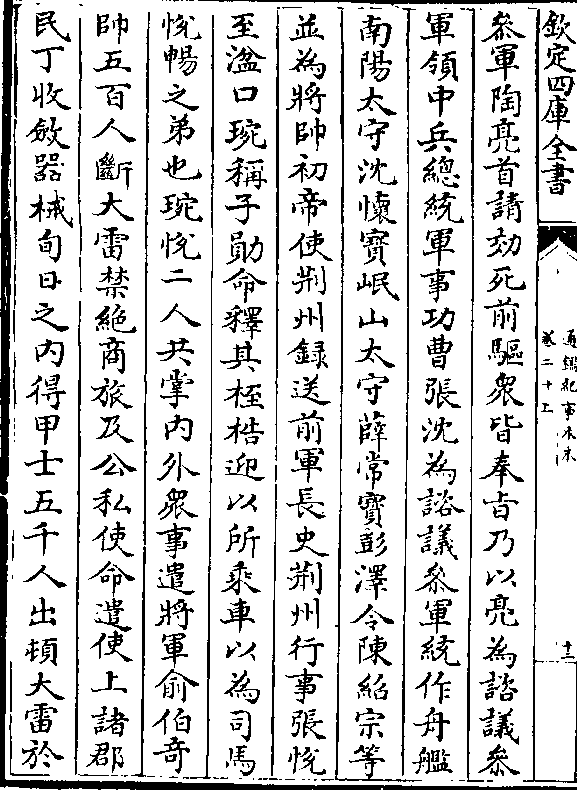 欽定四庫全書
通鑑紀事本末
卷二十上
十二
參軍陶亮首請効死前驅衆皆奉旨乃以亮為諮議參
軍領中兵總統軍事功曹張沈為諮議參軍統作舟艦
南陽太守沈懷寶岷山太守薛常寶彭澤令陳紹宗等
並為將帥初帝使荆州録送前軍長史荆州行事張悅
至湓口琬稱子勛命釋其桎梏迎以所乘車以為司馬
悅暢之弟也琬悅二人共掌内外衆事遣將軍俞伯竒
帥五百人斷大雷禁絶商旅及公私使命遣使上諸郡
民丁收斂器械旬日之内得甲士五千人出頓大雷於